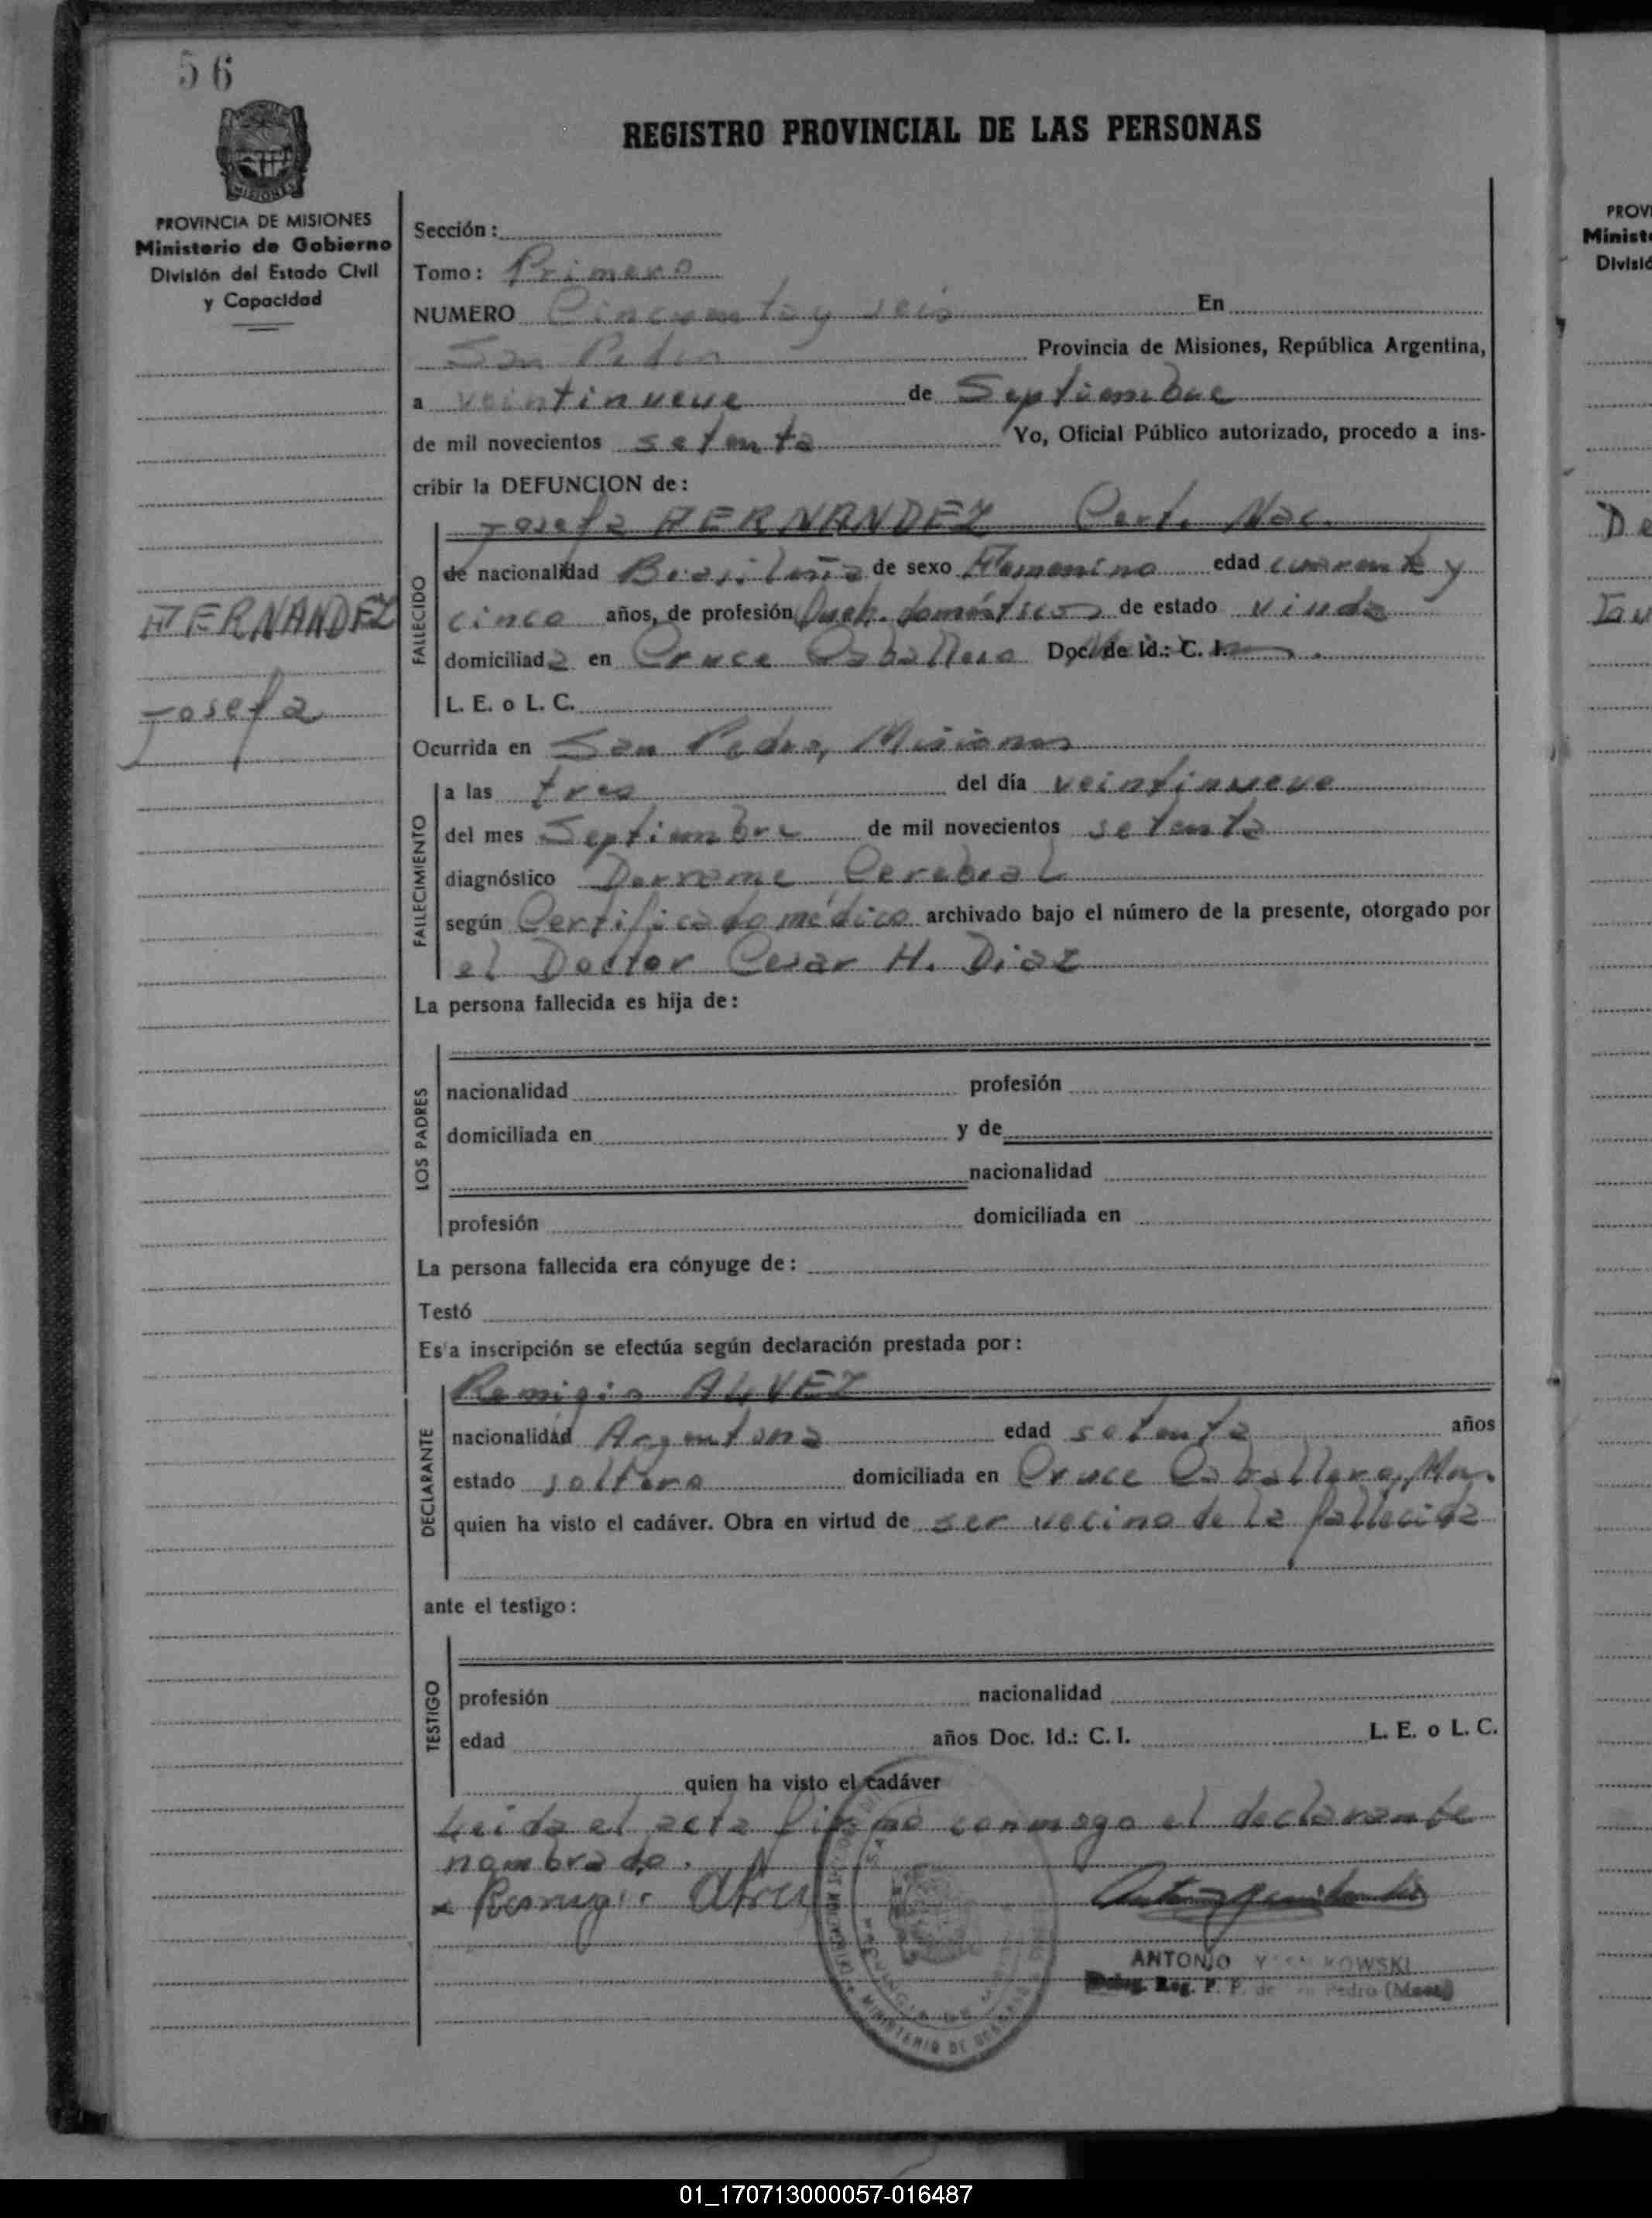 56
REGISTRO PROVINCIAL DE LAS PERSONAS
MISIONES
PROVINCIA DE MISIONES
Ministerio de Gobierno
División del Estado Civil
y Capacidad
Sección:
Tomo: Primero
NUMERO Cincuenta y seis En
San Pedro Provincia de Misiones, República Argentina,
a veintinueve de Septiembre
de mil novecientos setenta Yo, Oficial Público autorizado, procedo a ins-
cribir la DEFUNCION de:
Josefa HERNANDEZ Cert. Nac.
FALLECIDO
de nacionalidad Brasileña de sexo Femenino edad cuarenta y
cinco años, de profesión domésticos de estado viuda
domiciliada en Cruce Caballero Doc. de Id.: C. I.
L. E. o L. C.
HERNANDEZ
Josefa
Ocurrida en San Pedro, Misiones
FALLECIMIENTO
a las tres del día veintinueve
del mes Septiembre de mil novecientos setenta
diagnóstico Derrame Cerebral
según Certificado médico archivado bajo el número de la presente, otorgado por
el Doctor Cesar H. Diaz
La persona fallecida es hija de:
LOS PADRES
nacionalidad profesión
domiciliada en y de
nacionalidad
profesión domiciliada en
La persona fallecida era cónyuge de:
Testó
Esa inscripción se efectúa según declaración prestada por:
Remigio ALVEZ
DECLARANTE
nacionalidad Argentina edad setenta años
estado soltero domiciliada en Cruce Caballero, Mnes.
quien ha visto el cadáver. Obra en virtud de ser vecino de la fallecida
ante el testigo:
TESTIGO
profesión nacionalidad
edad años Doc. Id.: C. I. L. E. o L. C.
quien ha visto el cadáver
Leida el acta firma conmigo el declarante
nombrado.
x Remigio
ANTONIO
Reg. P. P. de Pedro (Mnes)
MINISTERIO DE
PROVI
Minist
Divisió
01_170713000057-016487